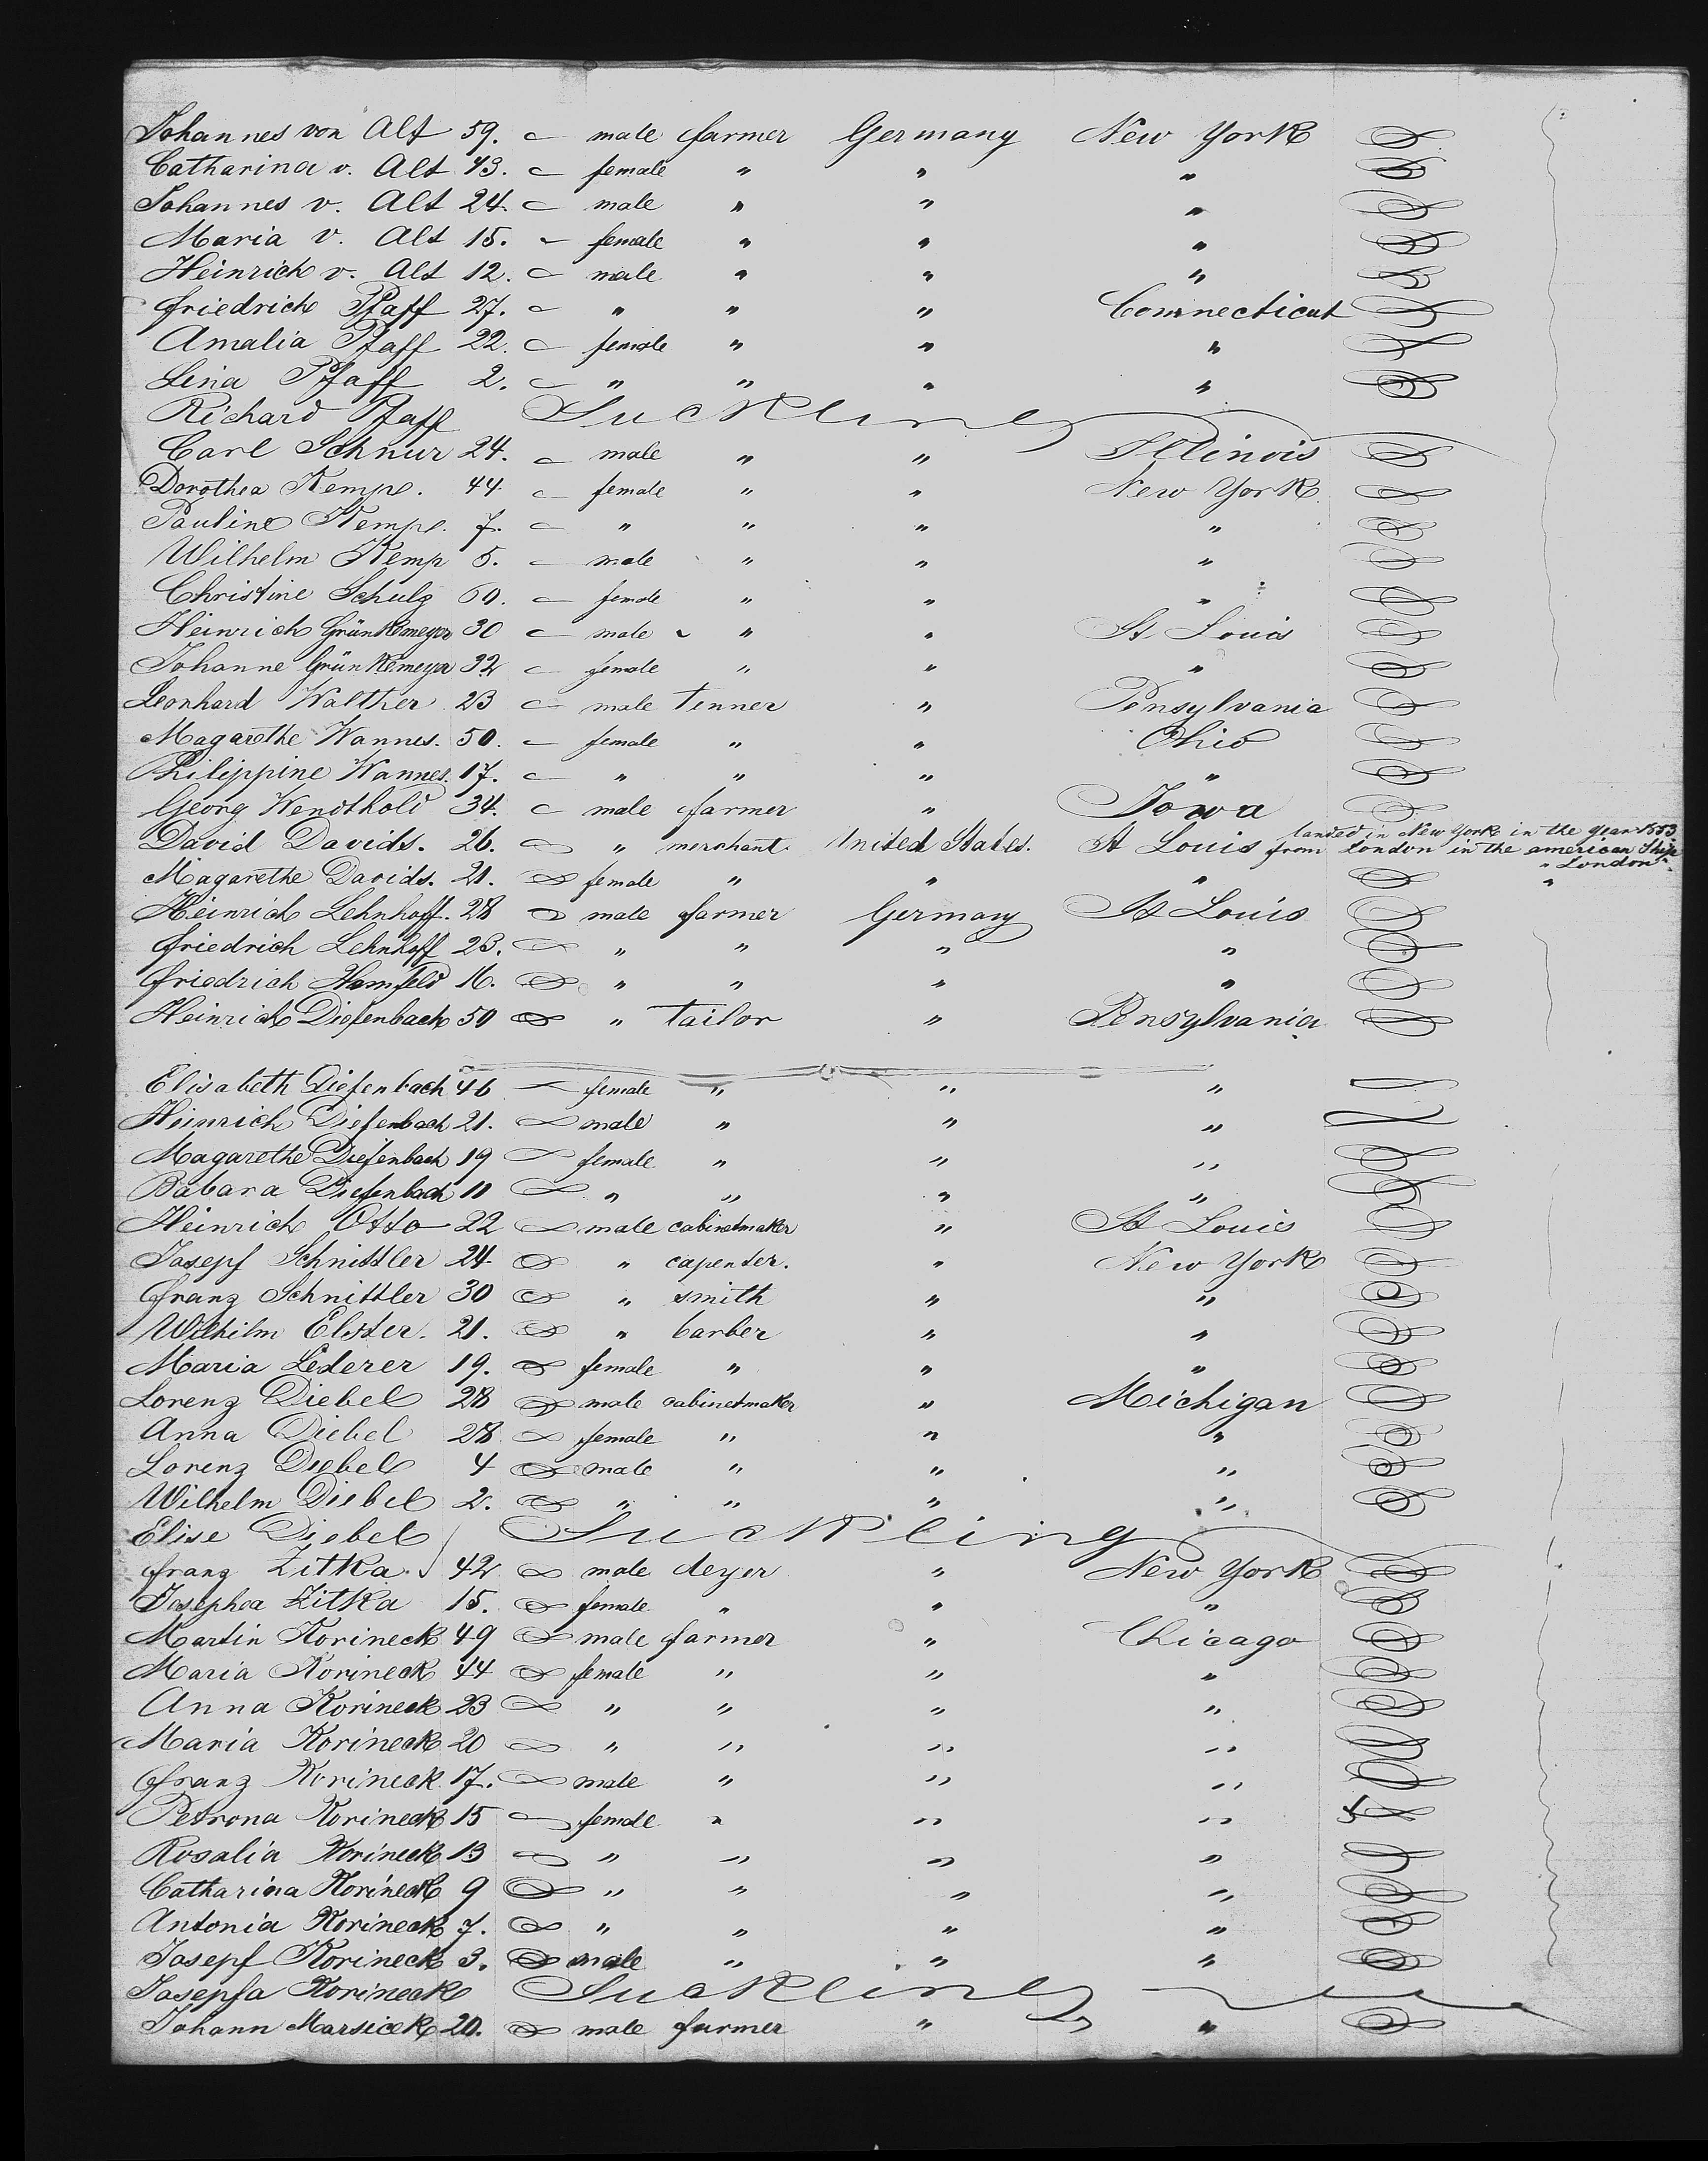 Johannes von Alt 59. male farmer Germany New York
Catharina v. Alt 43. female " " "
Johannes v. Alt 24. male " " "
Maria v. Alt 15. female " " "
Heinrich v. Alt 12. male " " "
Friedrich Pfaff 27. " " " Connecticut
Amalia Pfaff 22. female " " "
Lina Pfaff 2. " " " "
Richard Pfaff Suckling
Carl Schnur 24. male " " Illinois
Dorothea Kemp. 44 female " " New York
Pauline Kemp. 7. " " " "
Wilhelm Kemp 5. male " " "
Christine Schulz 60. female " " "
Heinrich Grünkemeyer 30 male " " St Louis
Johanne Grünkemeyer 32 female " " "
Leonhard Walther 23 male tenner " Pensylvania
Magarethe Wannes. 50. female " " Ohio
Philippine Wannes. 17. " " " "
Georg Wendthold 34. male farmer " Iowa
David Davids. 26. " merchant. United States. St Louis landed in New York in the year 1853
from London in the american Ship
Magarethe Davids. 21. female " " " " London"
Heinrich Lehnhoff. 28 male farmer Germany St Louis
Friedrich Lehnhoff 23. " " " "
Friedrich Hemfeld 16. " " " "
Heinrich Diefenbach 50 " tailor " Pensylvania
Elisabeth Diefenbach 46 female " " "
Heinrich Diefenbach 21. male " " "
Magarethe Diefenbach 19 female " " "
Babara Diefenbach 10 " " " "
Heinrich Otto 22 male cabinetmaker " St Louis
Josepf Schnittler 24. " capenter. " New York
Franz Schnittler 30 " smith " "
Wilhilm Elster. 21. " barber " "
Maria Lederer 19. female " " "
Lorenz Diebel 28 male cabinetmaker " Michigan
Anna Diebel 28 female " " "
Lorenz Diebel 4 male " " "
Wilhelm Diebel 2. " " " "
Elise Diebel Suckling
Franz Zitka. 42 male deyer " New York
Josepha Zitka 15. female " " "
Martin Korineck 49 male farmer " Chicago
Maria Korineck 44 female " " "
Anna Korineck 23 " " " "
Maria Korineck 20 " " " "
Franz Korineck 17. male " " "
Petrona Korineck 15 female " " "
Rosalia Korineck 13 " " " "
Catharina Korineck 9 " " " "
Antonia Korineck 7. " " " "
Josepf Korineck 3. male " " "
Josepfa Korineck Suckling
Johann Marsicek 20. male farmer " "